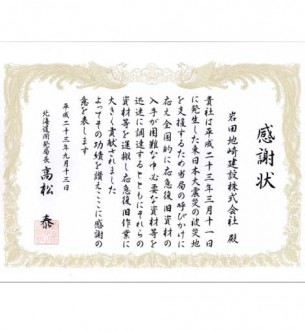 感謝状
岩田地崎建設株式会社 殿
貴社は平成二十三年三月十一日
に発生した東日本大震災の被災地
を支援するため当局の呼びかけに
応え全国的に応急復旧資材の
入手が困難な中必要な資材等を
迅速に調達するとともにそれらの
資材等を運搬し応急復旧作業に
大きく貢献されました
よってその功績を讃えここに感謝の
意を表します
平成二十三年九月十三日
北海道開発局長 高松 泰